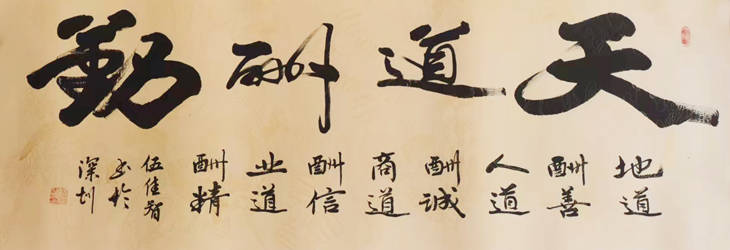 天道酬勤
地道酬善
人道酬诚
商道酬信
业道酬精
伍佳智
书於
深圳